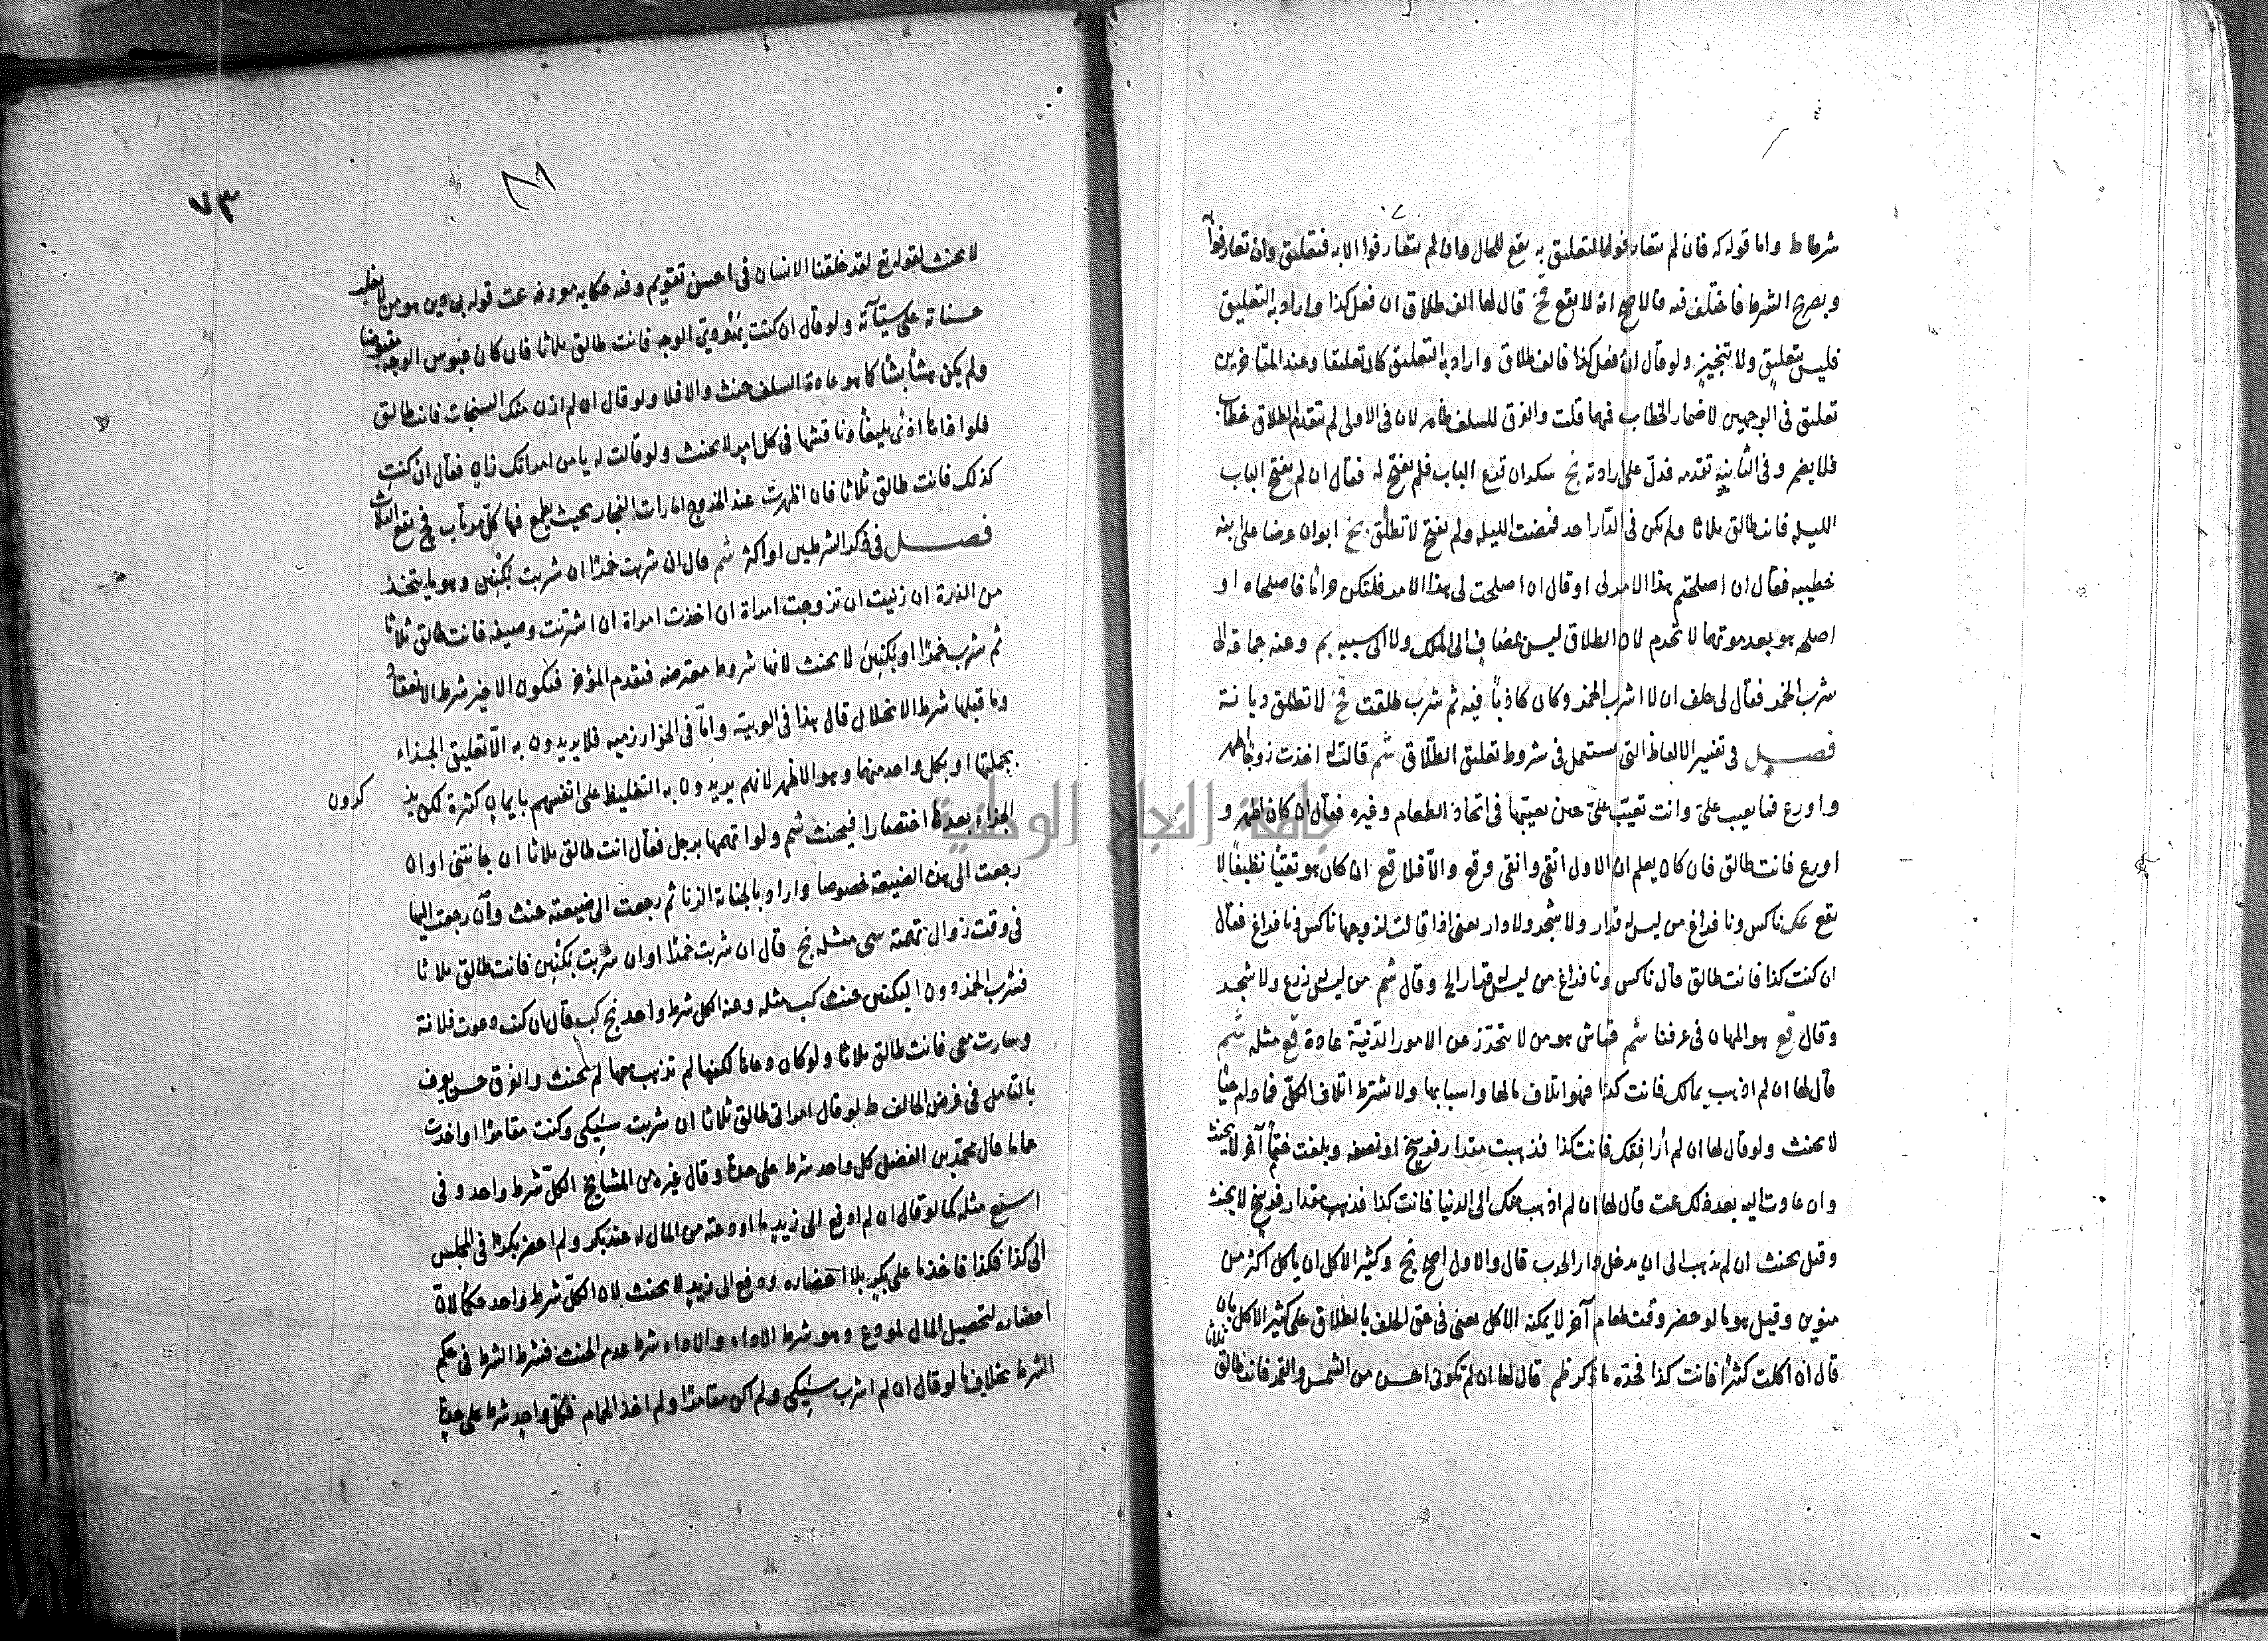 شرطا ط واما قوله كه فان لم يتعارفوا التعليق به يقع للحال وان لم يتعارفوا الا به فتعليق وان تعارفوا
وبصريح الشرط فاختلف فيه فالاصح انه لا يقع قال لها الف طلاق ان فعل كذا واراد به التعليق
فليس بتعليق ولا تنجيز ولو قال ان فعل كذا فالف طلاق واراد به التعليق كان تعليقا وعند المتاخرين
تعليق في الوجهين لاضمار الخطاب فيهما قلت والفرق للسلف ظاهر لان في الاولى لم يتقدم الطلاق خطاب
فلا يضم وفي الثانية تقدمه فدل على ارادته نج سكران قرع الباب فلم يفتح له فقال ان لم يفتح الباب
الليله فانت طالق ثلاثا ولم يكن في الدار احد فمضت الليله ولم يفتح لا تطلق نج ابوان عرضا على ابنه
خطيبه فقال ان اصلحتم هذا الامر لي او قال ان اصلحت لي هذا الامر فلتكن حراما فاصلحاه او
اصلحه هو بعد موتهما لا تحرم لان الطلاق ليس بمضاف الى الملك ولا الى سببه بم وعنه جماعة الى
شرب الخمر فقال لي حلف ان لا اشرب الخمر وكان كاذبا فيه ثم شرب طلقت لا تطلق ديانة
فصل في تفسير الالفاظ التي تستعمل في شروط تعليق الطلاق شم قالت له اخذت زوجا اطهر
واورع فما يعيب علي وانت تعيب علي حين بعيبها في اتخاذ الطعام وغيره فقال ان كان اطهر و
اورع فانت طالق فان كان يعلم ان الاول اتقى وانقى وقع والا فلا قع ان كان هو تقيا نظيفا لا
يقع عك ناكس ونا فداغ من ليس له قدار ولا شجر ولا دار يعني اذا قالت لزوجها ناكس ونا فداغ فقال
ان كنت كذا فانت طالق قال ناكس ونا فداغ من ليس له قدار الخ وقال شم من ليس له زرع ولا شجر
وقال قع هو المهان في عرفنا شم قماش هو من لا يتحرز عن الامور الدنية عادة قع مثله شم
قال لها ان لم اذهب بمالك فانت كذا فهو اتلاف مالها واسبابها ولا يشترط اتلاف الكل فما دام حيا
لا يحنث ولو قال لها ان لم ارافقك فانت كذا فذهبت مقدار فرسخ او نصفه وبلغت آخر لا يحنث
وان عادت اليه بعد ذلك عت قال لها ان لم اذهب عنك الى الدنيا فانت كذا فذهب مقدار فرسخ لا يحنث
وقيل يحنث ان لم يذهب الى ان يدخل دار الحرب قال والاول اصح نج وكثير الاكل ان ياكل اكثر من
منوين وقيل هو ما لو حضر وقت طعام آخر لا يمكنه الاكل يعني في حق الحلف بالطلاق على كثير الاكل بان
قال ان اكلت كثيرا فانت كذا فحده ما ذكر ظم قال لها ان لم تكوني احسن من الشمس والقمر فانت طالق ثلاثا
٧٣
لا يحنث لقوله تع لقد خلقنا الانسان في احسن تقويم وفيه حكايه معروفه عت قوله بي دين هو من لا يغلب
حسناته على سيآته ولو قال ان كنت الوجه فانت طالق ثلاثا فان كان عبوس الوجه مقبوضا
ولم يكن هشا بشا كما هو عادة السلف حنث والا فلا ولو قال ان لم ازن منك السنجات فانت طالق
فلو اذى بليغا وناقشها في كل امر لا يحنث ولو قالت له يا من امراتك زاني فقال ان كنت
كذلك فانت طالق ثلاثا فان اظهرت عند الخروج امارات الفجار بحيث يطمع فيها كل مرتاب يقع الثلاث
فصل في ذكر الشرطين او اكثر شم قال ان شربت خمرا ان شربت بكنين وهو ما يتخذ
من الذرة ان زنيت ان تزوجت امراة ان اخذت امراة ان اشتريت وصيفه فانت طالق ثلاثا
ثم شرب خمرا او بكنين لا يحنث لانها شروط معترضه فتقدم المؤخر فيكون الاخير شرط الانعقاد
وما قبلها شرط الانحلال قال هذا في العربية واما في الخوارزميه فلا يريدون به الا تعليق الجزاء
بجملتها او بكل واحد منهما وهو الاظهر لانهم يريدون به التغليظ على انفسهم بايمان كثيرة لكن يذكرون
الجزاء بعدها اختصارا فيحنث شم ولو اتهمها برجل فقال انت طالق ثلاثا ان جانتني او ان
رجعت الى هذه الضيعة خصوصا واراد بالجناية الزنا ثم رجعت الى ضيعته حنث وان رجعت اليها
في وقت زوال تهمته سى مثله نج قال ان شربت خمرا او ان شربت بكنين فانت طالق ثلاثا
فشرب الخمر دون البكنين حنث كب مثله وعنه الكل شرط واحد نج كب قال ان كنت دعوت فلانة
وسارت معي فانت طالق ثلاثا ولو كان دعاها لكنها لم تذهب معها لم يحنث والفرق حسن يعرف
بالتامل في غرض الحالف ط لو قال امراتي طالق ثلاثا ان شربت سيكي وكنت مقامرا او اخذت
حاما قال محمد بن الفضل كل واحد شرط على حدة وقال غيره من المشايخ الكل شرط واحد وفي
اسنع مثله كما لو قال ان لم ادفع الى زيد ما اودعته من المال له عند بكر ولم احضر بكرا في المجلس
الى كذا فكذا فاخذها على بكر بلا احضاره ودفع الى زيد لا يحنث لان الكل شرط واحد حكما لان
احضاره لتحصيل المال لمودع وهو شرط الاداء والاداء شرط عدم الحنث فشرط الشرط في حكم
الشرط بخلاف ما لو قال ان لم اشرب سيكي ولم اكن مقامرا ولم اخذ الحمام فكل واحد شرط على حدة
جامعة النجاح الوطنية